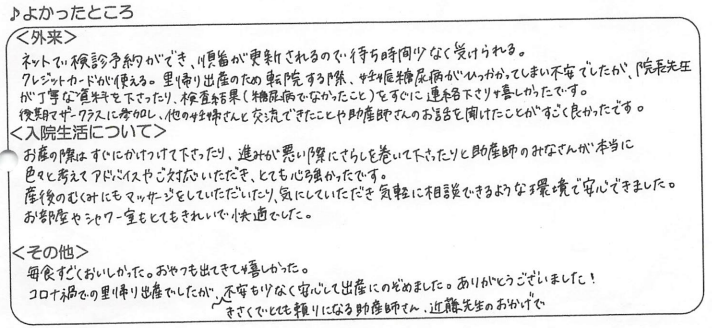 ♪よかったところ
<外来>
ネットで検診予約ができ、順番が更新されるので待ち時間少なく受けられる。
クレジットカードが使える。里帰り出産のため転院する際、妊娠糖尿病がひっかかってしまい不安でしたが、院長先生
が丁寧な資料を下さったり、検査結果(糖尿病でなかったこと)をすぐに連絡下さり嬉しかったです。
後期マザークラスに参加し、他の妊婦さんと交流できたことや助産師さんのお話を聞けたことがすごく良かったです。
<入院生活について>
お産の際はすぐにかけつけて下さったり、進みが悪い際にさらしを巻いて下さったりと助産師のみなさんが本当に
色々と考えてアドバイスやご対応いただき、とても心強かったです。
産後のむくみにもマッサージをしていただいたり、気にしていただき気軽に相談できるような環境で安心できました。
お部屋やシャワー室もとてもきれいで快適でした。
<その他>
毎食すごくおいしかった。おやつも出てきて嬉しかった。
コロナ禍での里帰り出産でしたが、不安も少なく安心して出産にのぞめました。ありがとうございました!
きさくでとても頼りになる助産師さん、近藤先生のおかげで